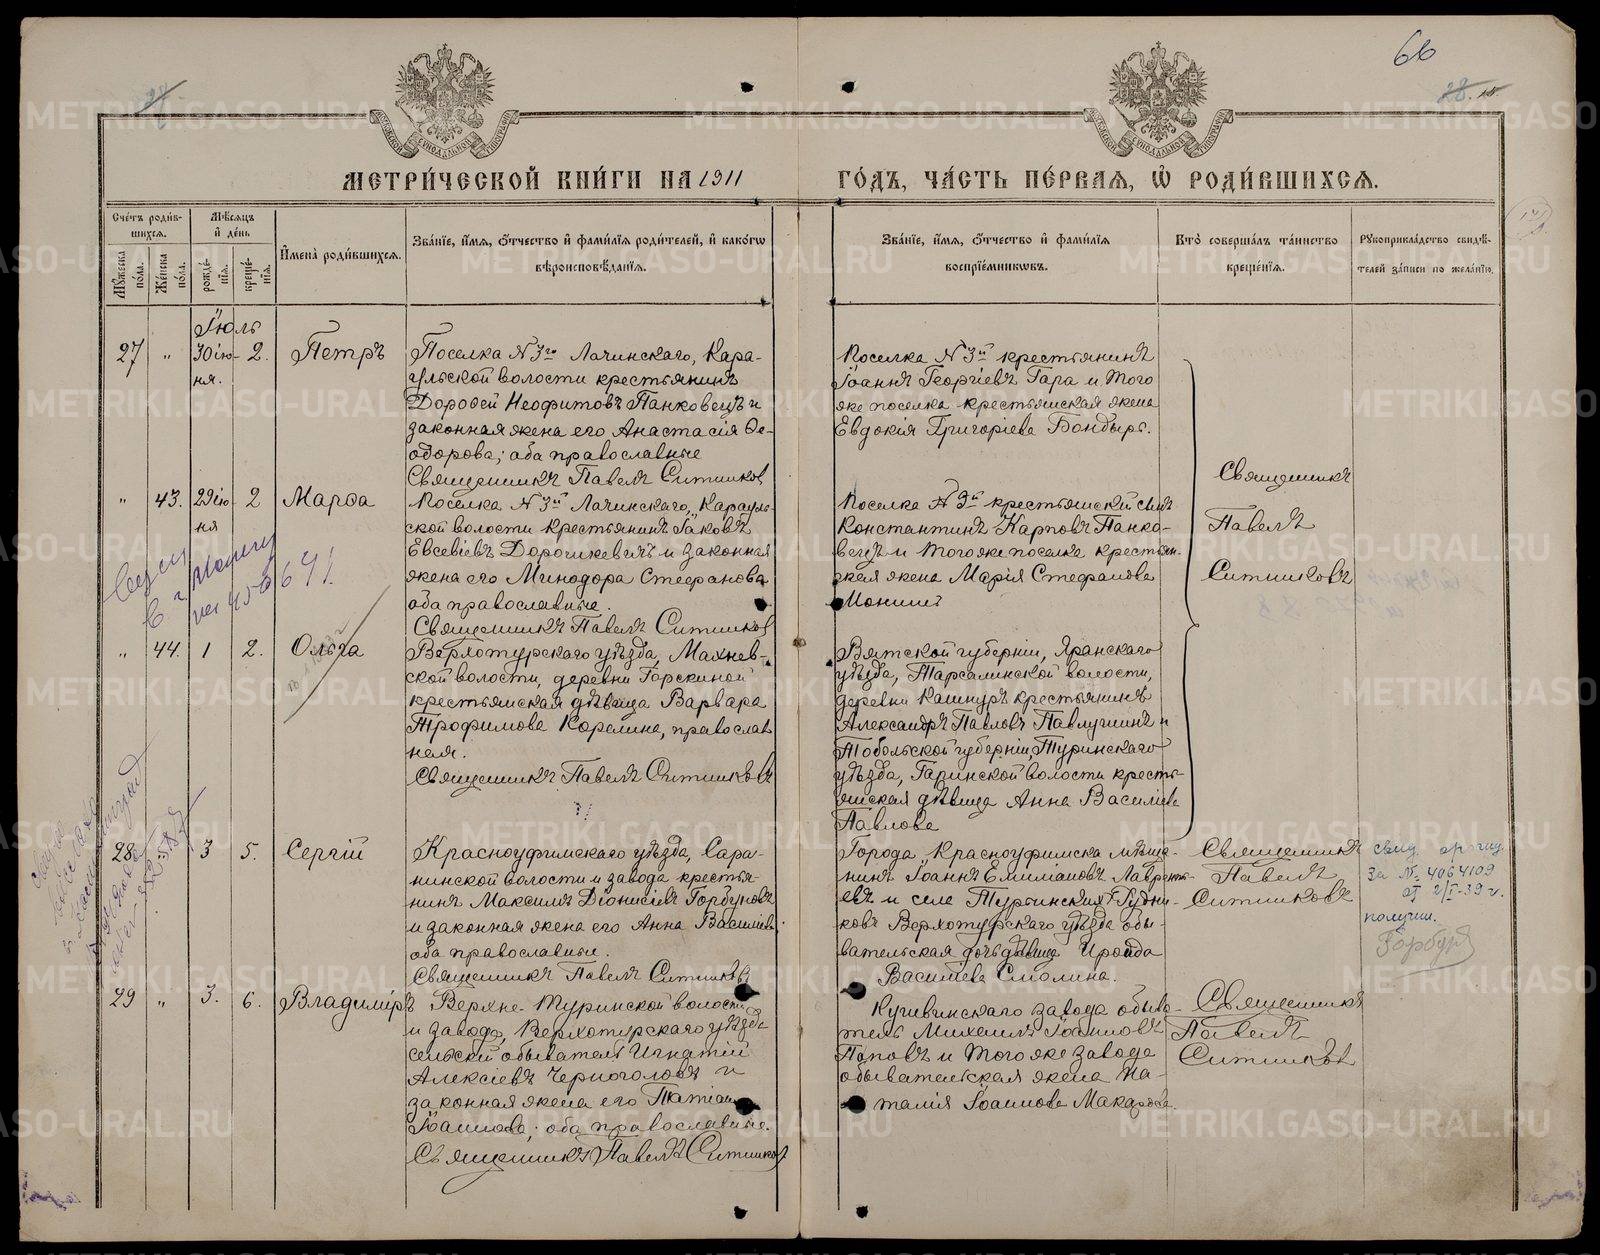 66
28.
МЕТРИ́ЧЕСКОЙ КНИ́ГИ НА 1911
ГО́ДЪ, ЧА́СТЬ ПЕ́РВАЯ, Ѡ РОДИ́ВШИХСЯ.
Сче́тъ роди́в-
шихся.
Му́жеска по́ла.
Же́нска по́ла.
Мѣ́сяцъ и де́нь
рожде́-
нїя.
креще́-
нїя.
И́мена̀ роди́вшихся.
Зва́нїе, и́мя, о́тчество и фами́лїя роди́телей, и како́гѡ
вѣроисповѣ́данїя.
Зва́нїе, и́мя, о́тчество и фами́лїя
воспрїе́мникѡвъ.
Кто̀ соверша́лъ та́инство
креще́нїя.
Рукоприкла́дство свидѣ́-
телей за́писи по жела́нїю.
Іюль
27 " 30 ію- 2. Петръ
ня.
Поселка N 3го Лачинскаго, Кара-
ульской волости крестьянинъ
Дорофей Неофитовъ Панковецъ и
законная жена его Анастасія Ѳе-
одорова; оба православные
Священникъ Павелъ Ситников
Поселка N 3й крестьянинъ
Іоаннъ Георгіевъ Гара и того
же поселка крестьянская жена
Евдокия Григоріева Бондырь.
" 43. 29 ію- 2 Марѳа
ня
Поселка N 3й Лачинскаго, Карауль-
ской волости крестьянинъ Іаковъ
Евсевіевъ Дорошкевичъ и законная
жена его Минодора Стефанова
оба православные.
Священникъ Павелъ Ситников
Поселка N 3й крестьянский сынъ
Константинъ Карповъ Панко-
вецъ и того же поселка крестьян-
ская жена Марія Стефанова
Священникъ
Павелъ
Ситниковъ
" 44. 1 2. Ольга
Верхотурскаго уѣзда, Махнев-
ской волости, деревни Горскиной
крестьянская дѣвица Варвара
Трофимова Корелина, православ
ная.
Священникъ Павелъ Ситниковъ
Вятской губерніи, Яранскаго
уѣзда, Тарсалинской волости,
деревни Кашнуръ крестьянинъ
Александръ Павловъ Павлушинъ и
Тобольской губерніи, Туринскаго
уѣзда, Гаринской волости кресть-
янская дѣвица Анна Василіева
Павлова
28 3 5. Сергій
Красноуфимскаго уѣзда, Сара-
нинской волости и завода крестья-
нинъ Максимъ Діонисіевъ Горбуновъ
и законная жена его Анна Василіева
оба православные.
Священникъ Павелъ Ситников
Города Красноуфимска мѣща-
нинъ Іоаннъ Лавренть-
евъ и села Турьинскихъ Рудни-
ковъ Верхотурскаго уѣзда обы-
вательская дочь дѣвица Ираида
Василіева Смолина.
Священникъ
Павелъ
Ситниковъ
за № 4064109
от 2/I-39 г.
получил.
29 " 3. 6. Владиміръ
Верхне-Туринской волости
и завода, Верхотурскаго уѣзда
сельский обыватель Игнатій
Алексіевъ Черноголовъ и
законная жена его
Іоаннова; оба православные.
Священникъ Павелъ Ситников
Кушвинскаго завода обыва-
тель Михаилъ Іоанновъ
Поповъ и того же завода
обывательская жена На-
талія Іоаннова Макарова
Священникъ
Павелъ
Ситниковъ